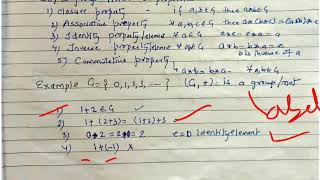 1) closure property - if a,b ∈ G then a*b ∈ G
2) Associative property ∀ a,b,c ∈ G then a*(b*c) = (a*b)*c
3) Identity property/element ∀ a ∈ G a*e = e*a = a
4) Inverse property ∀ a ∈ G a*b = b*a = e
b is inverse of a
5) Commutative property
a*b = b*a ∀ a,b ∈ G
Example G = {0,1,2,3, ---} (G,+) is a group/not
1) 1+2 ∈ G ✓
2) 1+(2+3) = (1+2)+3
3) 0+2 = 2+0 = 2 e=0 identity element
4) 1+(-1) X